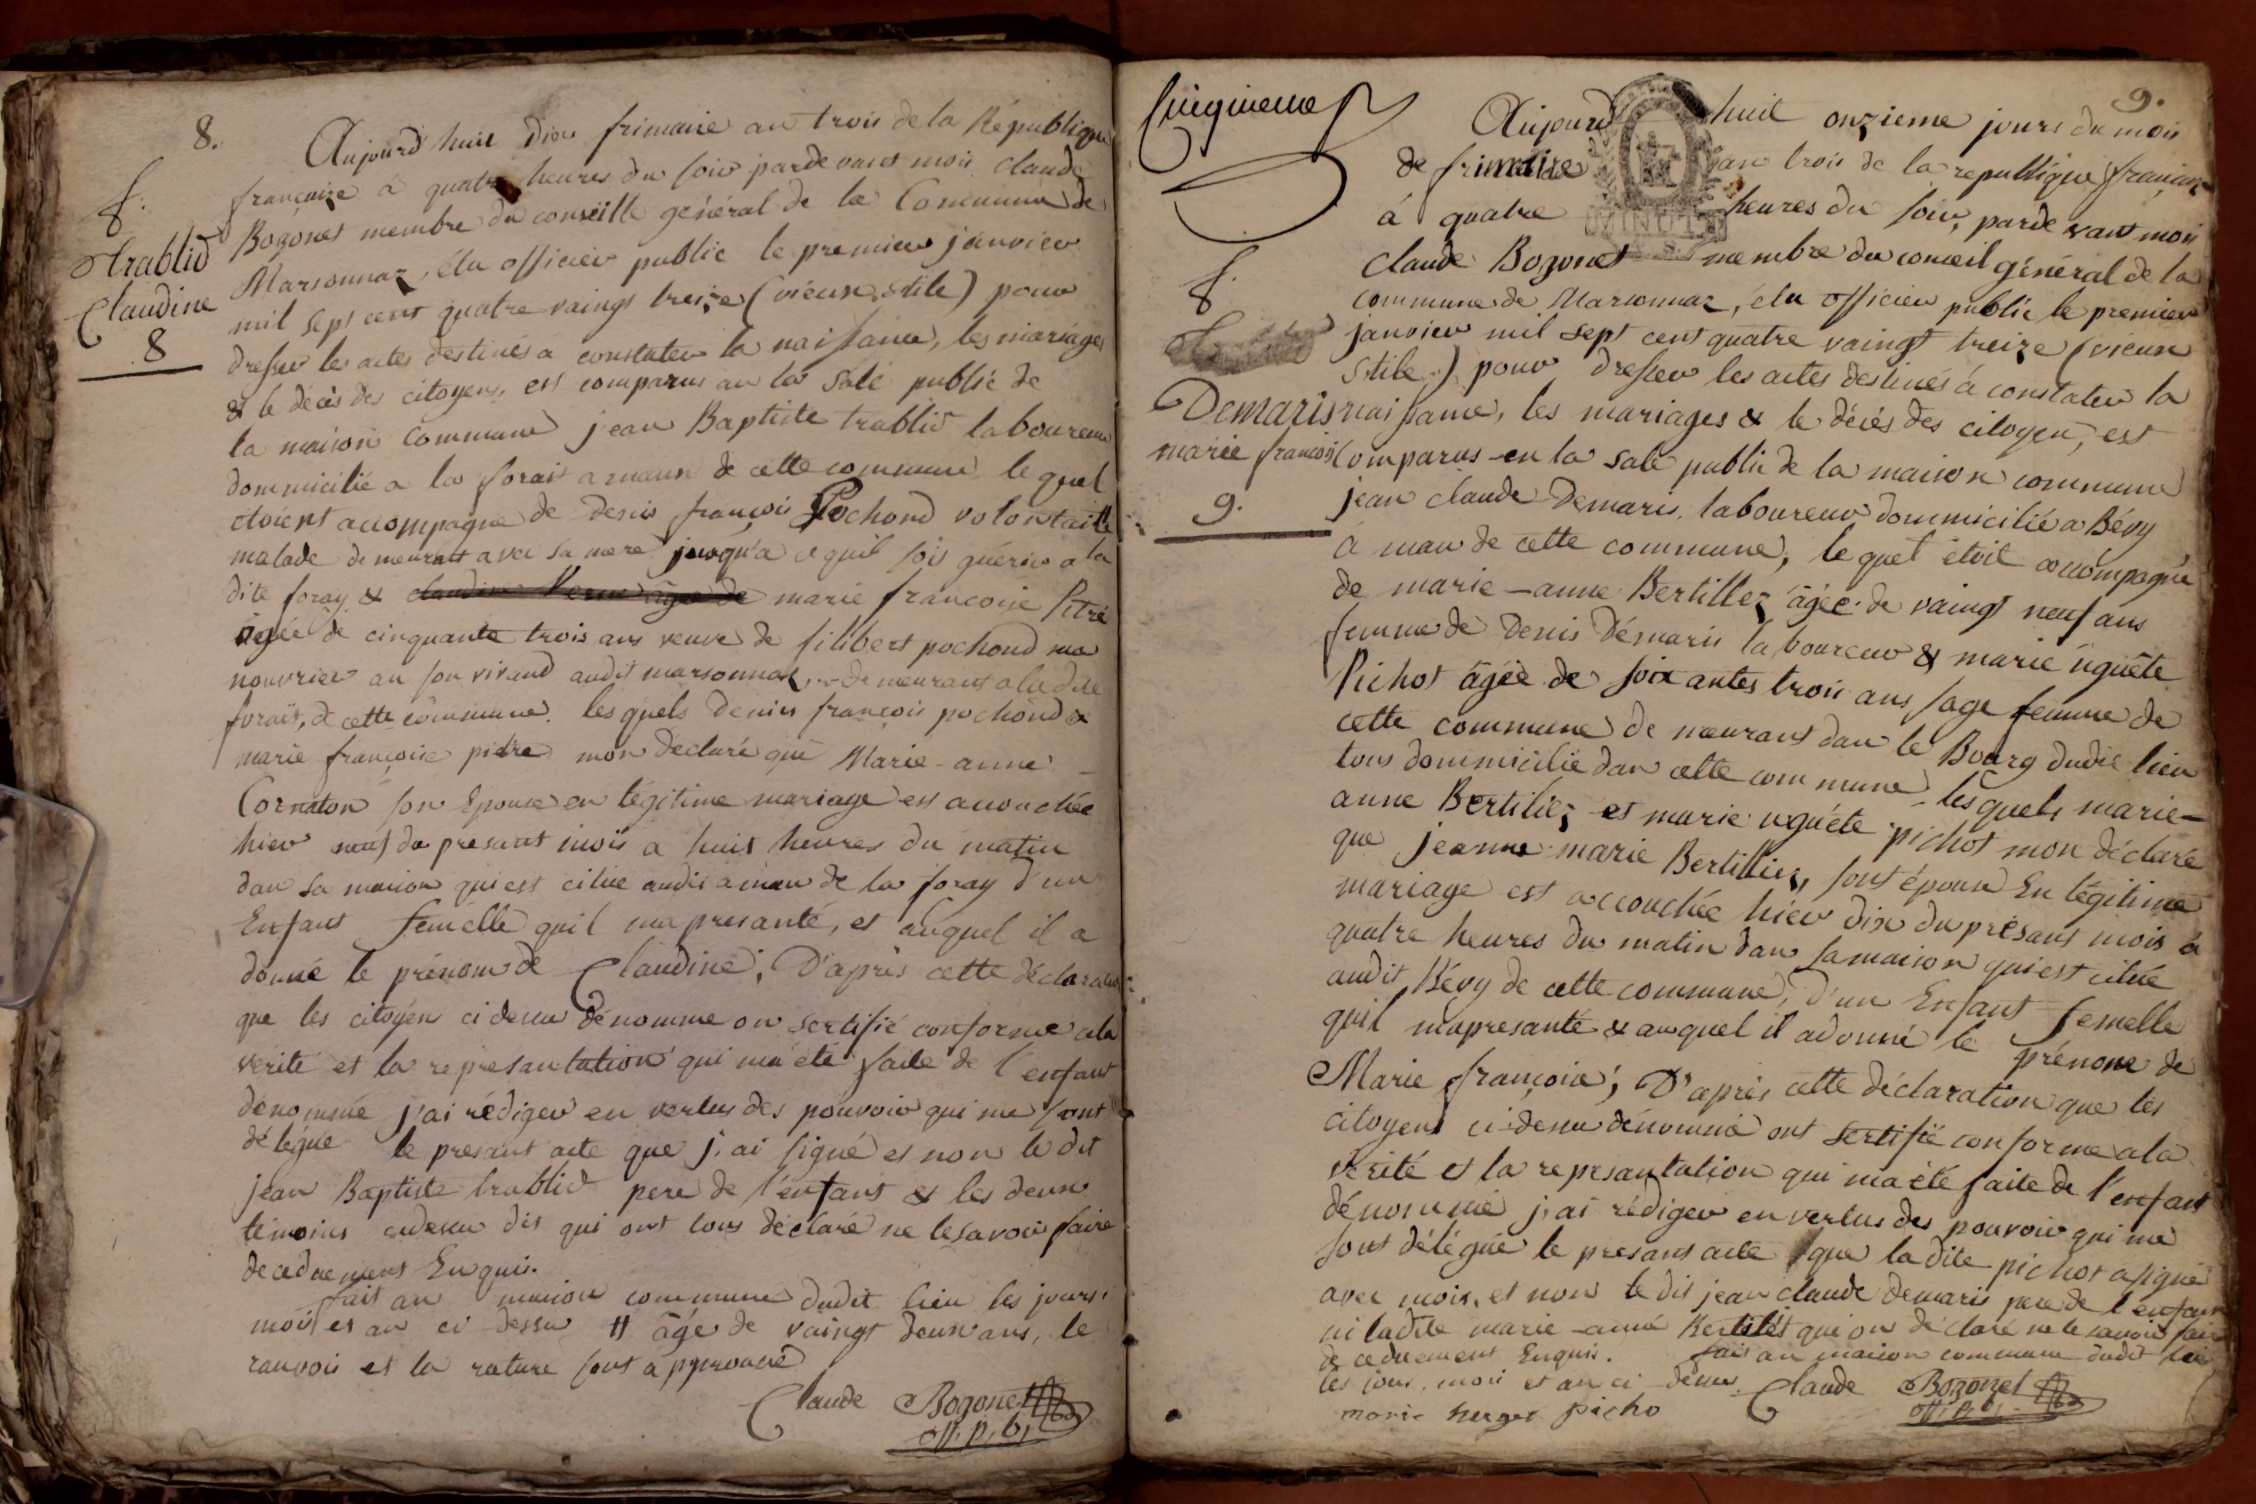 8.
f.
trablid
Claudine
8
Aujourd'huit dix frimaire an trois de la République
françoize a quatre heures du soir pardevant moi claude
Bozonet membre du conseille général de la Commune de
Marsonnaz, élu officier public le premier janvier
mil sept cent quatre vaingt treize (vieux stile) pour
dresser les actes destinés a constater la naissance, les mariages
& le décès des citoyens, est comparus an la sale public de
la maison commune jean Baptiste trablid laboureur
dommicilié a la forait amaux de cette commune le quel
étoient accompagne de denis françois Pochond volontaire
malade demeurant avec sa mere jusqu'a ce quil sois guéris a la
dite foray & claudine age de marie francoise Pitre
âgée de cinquante trois ans veuve de filibert pochond ma
nouvrier an son vivand audit marsonnaz, demeurant a la dite
forait, de cette commune. lesquels denis françois pochond &
marie françoise pitre mon déclaré que Marie-anne
Cornaton son Epouse en légitime mariage est accouchée
hier neuf du presant mois a huit heures du matin
dan sa maison qui est citué audit amau de la foray d'un
Enfant femelle quil ma presanté, et auquel il a
donné le prénom de Claudine; D'après cette déclaration
que les citoyen ci desu dénomme on sertifié conforme a la
vérité et la represantation qui ma été faite de l'enfant
dénommé j'ai rédiger en vertus des pouvoir qui me sont
délégué le presant acte que j'ai signé et non le dit
jean Baptiste trablid pere de l'enfant & les deux
témoins cidesu dit qui ont tous déclaré ne le savoir faire
de ceduement Enquis.
fait an maison commune dudit lieu les jours
mois et an ci dessu # âgé de vaingt deux ans, le
ranvois et la rature sont approuvé
Claude Bozonet
off. p. b.
Cinquieme
9.
f.
Demaris
marie francois
9.
Aujourd'huit onzieme jours du mois
de frimaire an trois de la republique françoize
á quatre heures du soir, pardevant moi
claude Bozonet membre du conseil général de la
commune de Marsonnaz, élu officier public le premier
janvier mil sept cent quatre vaingt treize (vieux
stile) pour dresser les actes destinés á constater la
naissance, les mariages & le décès des citoyen, est
Comparus en la sale public de la maison commune
jean claude Demaris laboureur dommicilié a Bévy
á mau de cette commune, le quel étoit accompagné
de marie-anne Bertillez âgée de vaingt neuf ans
femme de Denis Démaris laboureur & marie uguête
Pichot âgée de soixantes trois ans sage femme de
cette commune demeurant dan le Bourg dudit lieu
tous dommicilié dan cette commune, lesquels marie-
anne Bertiliez et marie uguéte pichot mon déclaré
que jeanne-marie Bertillier, sont épouse En légitime
mariage est accouchée hier dix du présant mois á
quatre heures du matin dan samaison qui est citué
audit Bévy de cette commune, d'un Enfant femelle
quil mapresanté & auquel il adonné le prénome de
Marie françoise; D'après cette déclaration que les
citoyens ci-desu dénommé ont sertifié conforme a la
vérité et la represantation qui ma été faite de l'enfant
dénommé j'ai rédiger en vertus des pouvoir qui me
sont délégué le presans acte que ladite pichot a signé
avec mois, et non le dit jean claude demaris pere de l'enfant
ni ladite marie-anne Bertilet qui on déclaré ne le savoir faire
de ceduement Enquis. fait an maison commune dudit lieu
les jour, mois et an ci-désu
Claude Bozonet
off. p. b.
marie huget picho
MINUT.